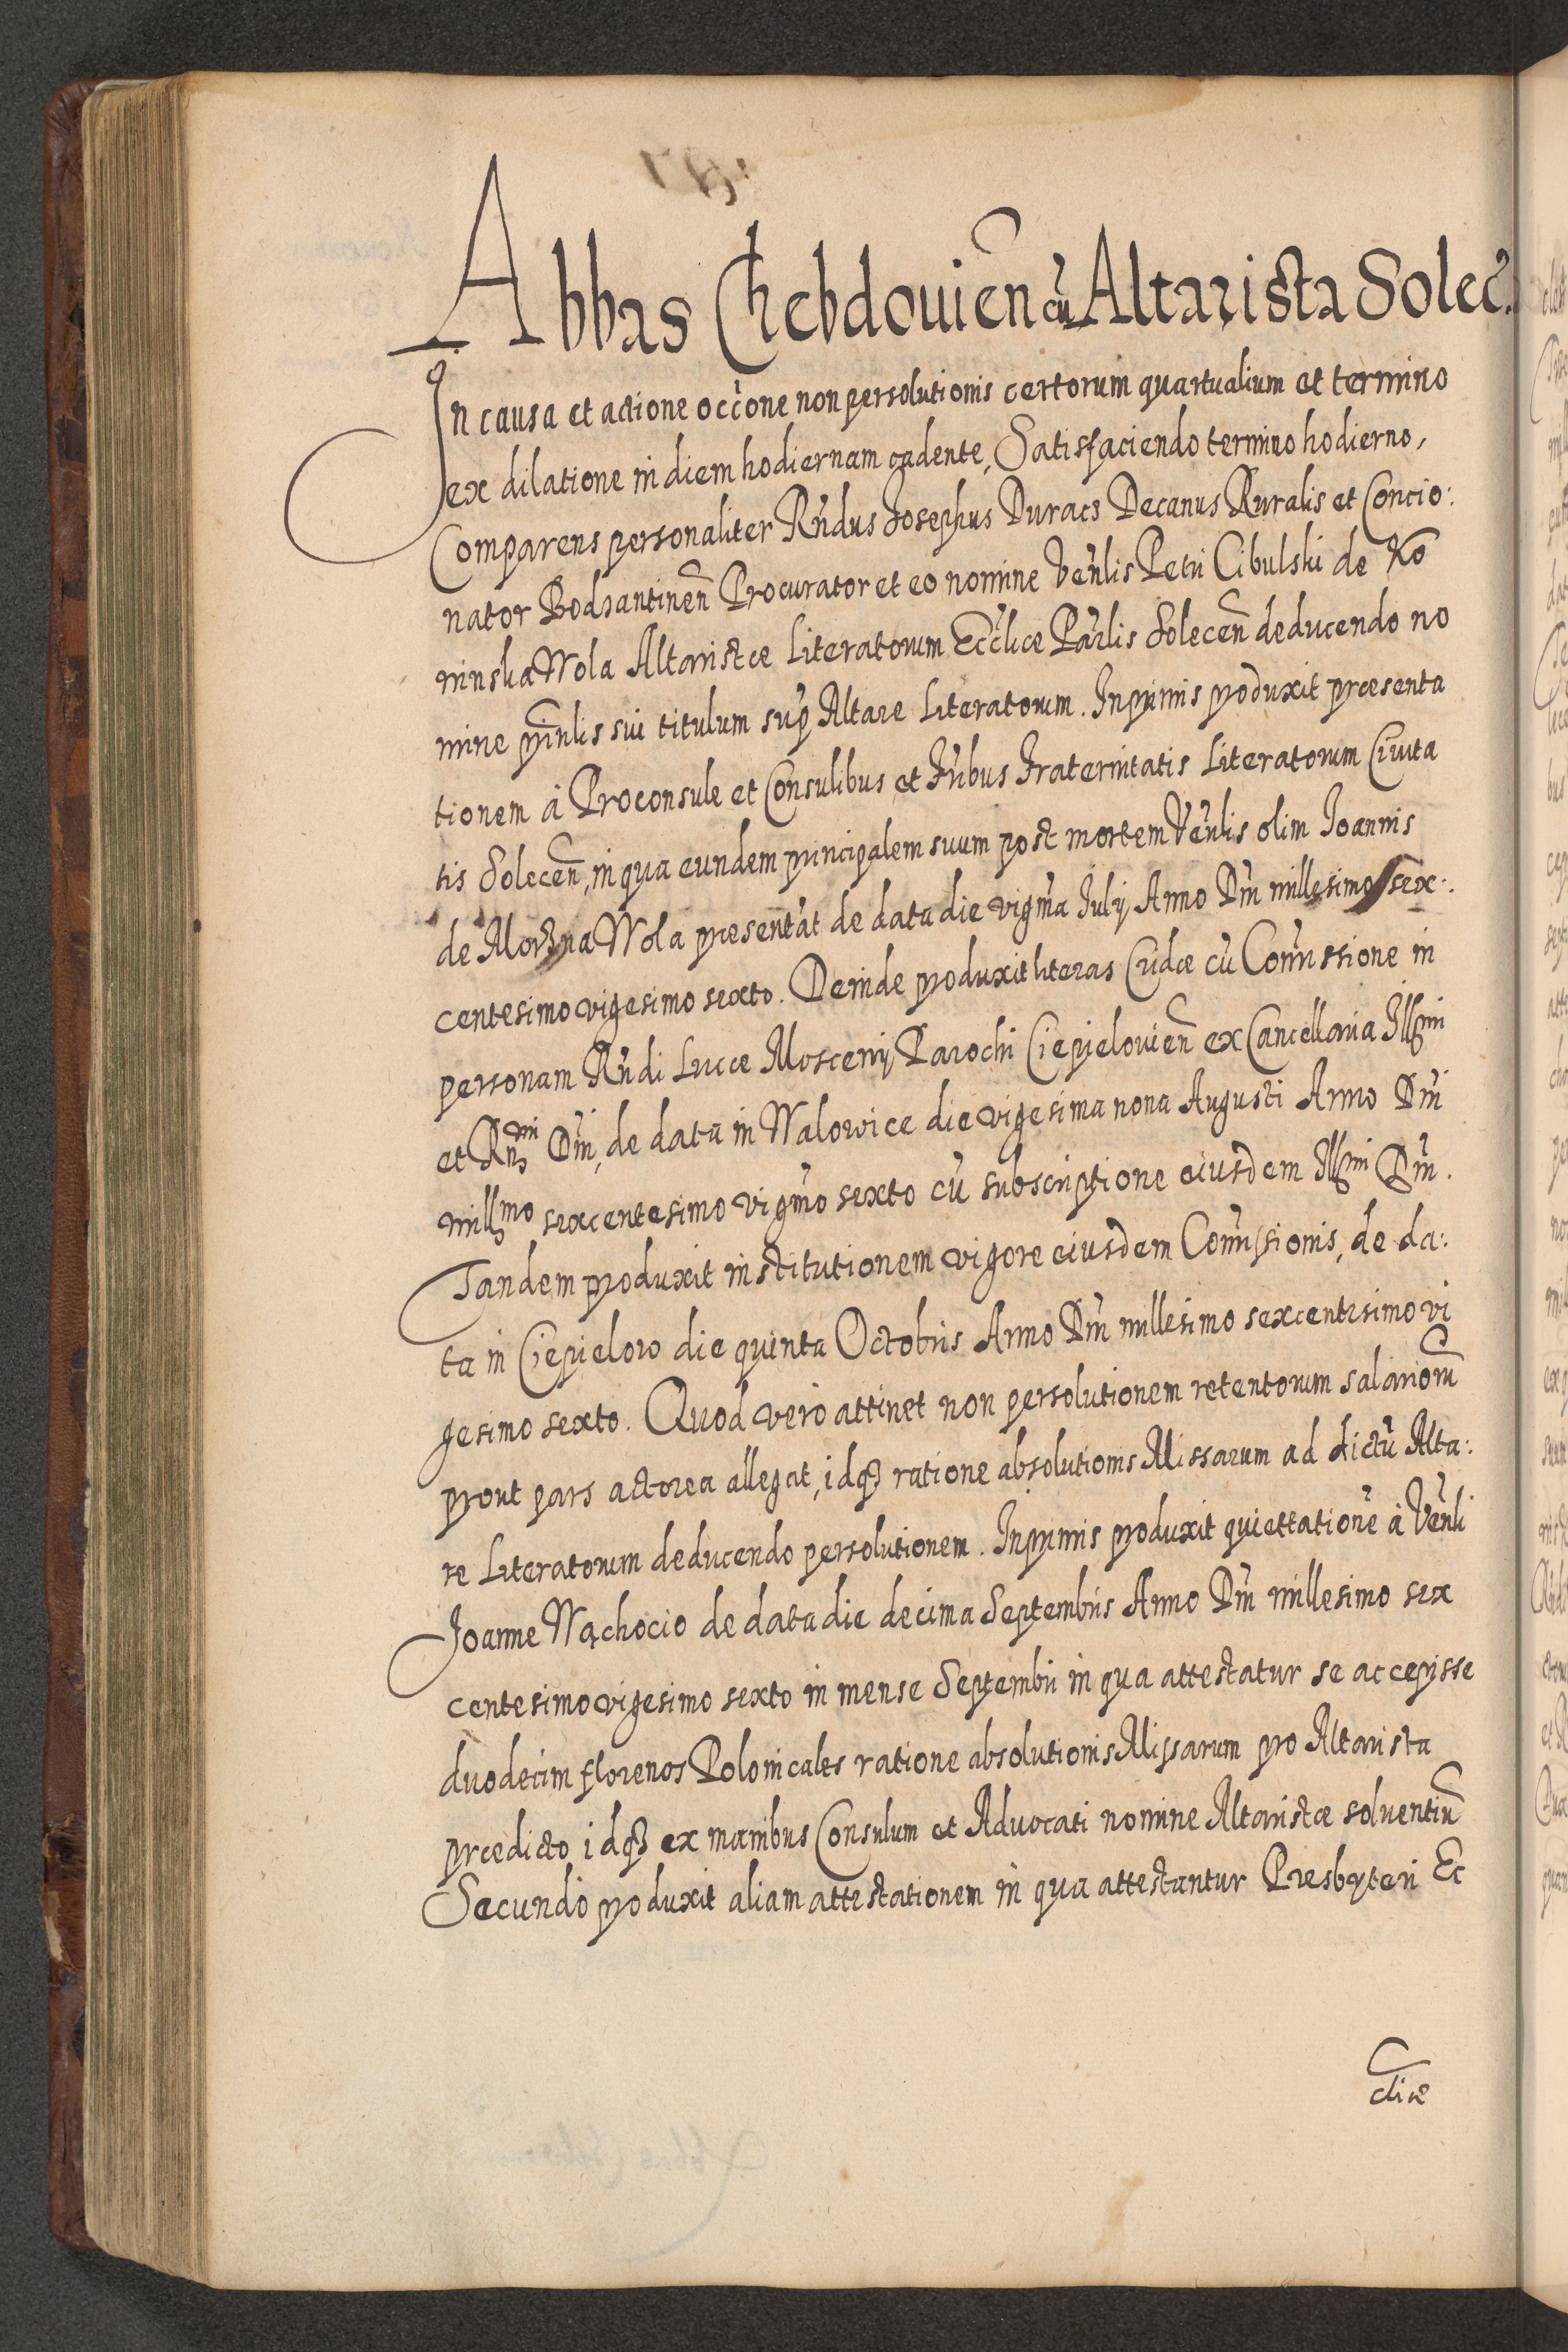 Abbas Chebdouien̄ cū Altarista Solec̄.
In causa et actione occōne non persolutionis certorum quartualium et termino
ex dilatione in diem hodiernam cadente, Satisfaciendo termino hodierno,
Comparens personaliter Rn̄dus Josephus Duracz Decanus Ruralis et Concio:
nator Bodzantinen̄ Procurator et eo nomine Ven̄lis Petri Cibulski de Ko
minska Wola Altaristæ Literatorum Eccl̄iæ Par̄lis Solecen̄ deducendo no
mine prin̄lis sui titulum sup̄ Altare Literatorum. Inprimis produxit præsenta
tionem à Proconsule et Consulibus et Fr̄ibus Fraternitatis Literatorum Ciuita
tis Solecen̄, in qua eundem principalem suum post mortem Ven̄lis olim Joannis
de Morzna Wola præsentāt de data die vigm̄a Julij Anno Dn̄i millesimo sex:
centesimo vigesimo sexto. Deinde produxit literas Crūdæ cū Com̄issione in
personam Rn̄di Lucæ Moscenij Parochi Ciepielouien̄ ex Cancellaria Illm̄i
et Rn̄dmi Dn̄i, de data in Walowice die vigesima nona Augusti Anno Dn̄i
millmo sexcentesimo vigm̄o sexto cū subscriptione eiusdem Illm̄i Dn̄i.
Tandem produxit institutionem vigore eiusdem Com̄issionis, de da:
ta in Ciepielow die quinta Octobris Anno Dn̄i millesimo sexcentesimo vi
gesimo sexto. Quod vero attinet non persolutionem retentorum salariorū
prout pars actorea allegat, idq3 ratione absolutionis Missarum ad dictū Alta:
re Literatorum deducendo persolutionem. Inprimis produxit quiettationē à Ven̄li
Joanne Wąchocio de data die decima Septembris Anno Dn̄i millesimo sex
centesimo vigesimo sexto in mense Septembri in qua attestatur se accepisse
duodecim florenos Polonicales ratione absolutionis Missarum pro Altarista
prædicto idq3 ex manibus Consulum et Aduocati nomine Altaristæ soluentiū
Secundo produxit aliam attestationem in qua attestantur Presbyteri Ec
cliæ